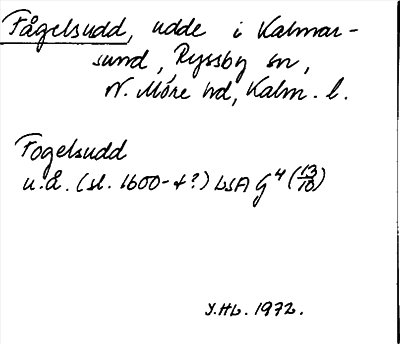 Fågelsudd, udde i Kalmar-
sund, Ryssby sn,
N. Möre hd, Kalm. l.
Fogelsudd
u.å. (sl. 1600-t?) LSA G4 (13/10)
Y.Hb. 1972.